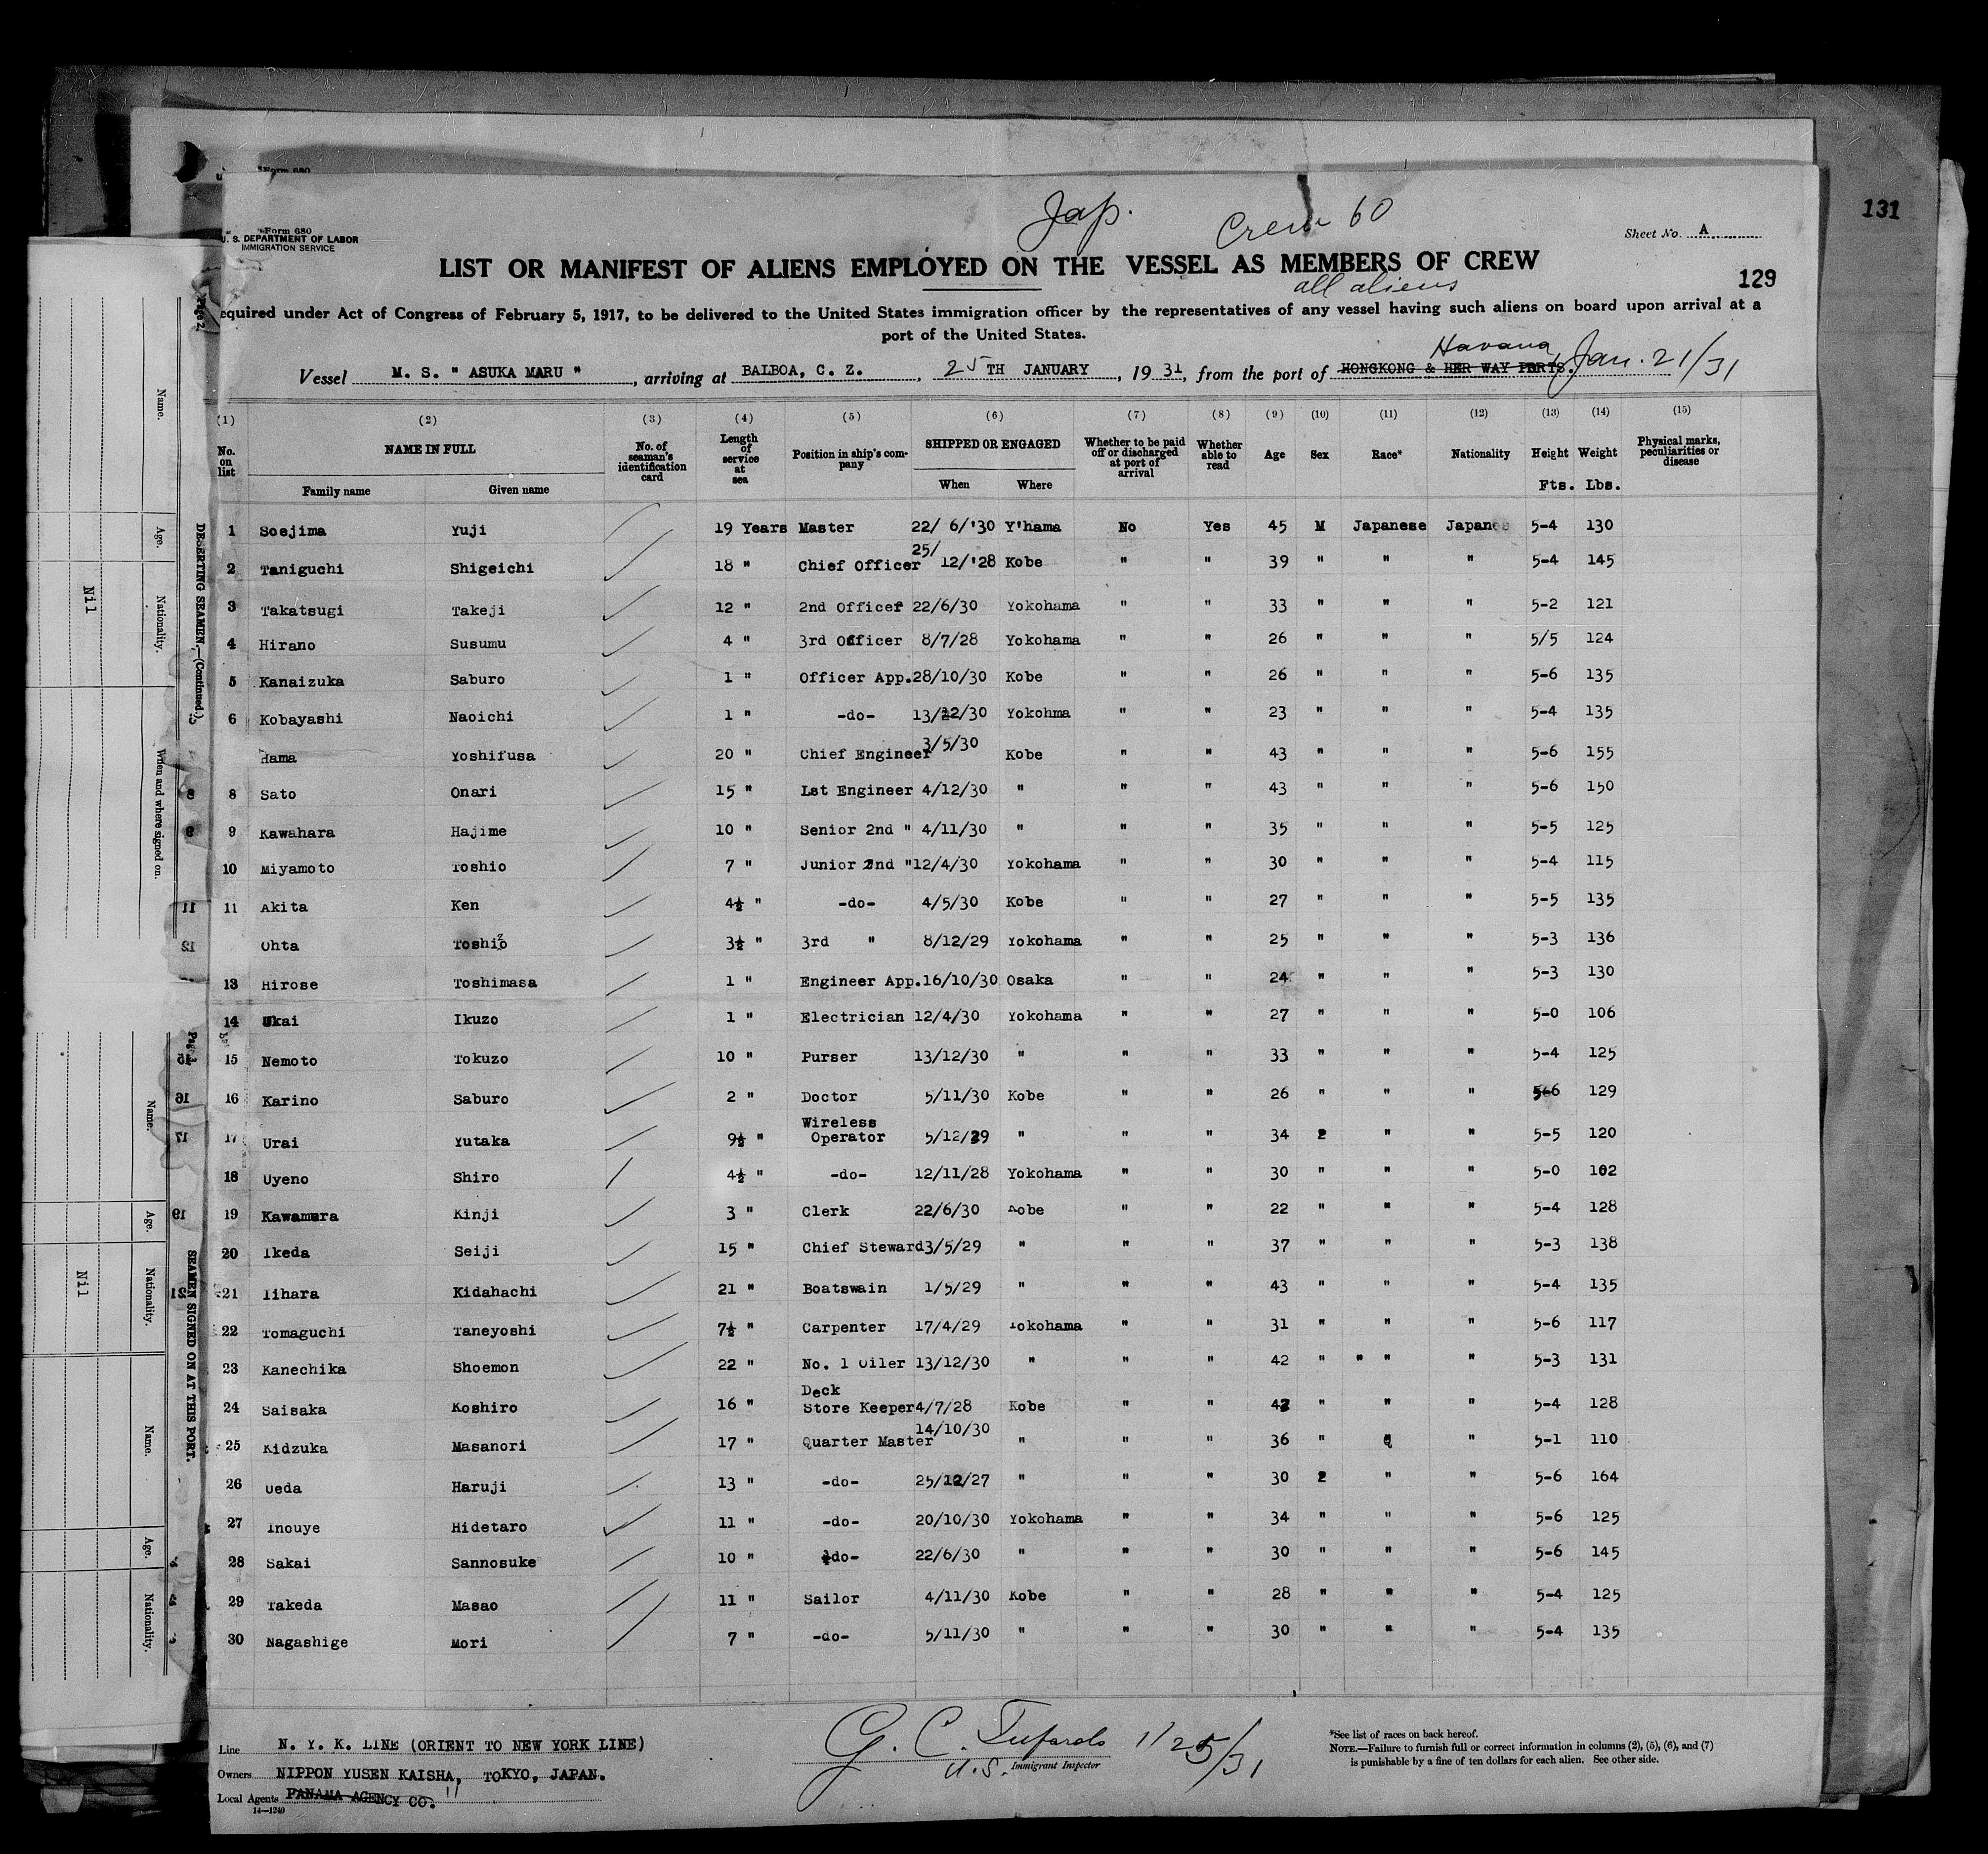 131
Jap.
Crew 60
Form 680
U. S. DEPARTMENT OF LABOR
IMMIGRATION SERVICE
Sheet No. A
LIST OR MANIFEST OF ALIENS EMPLOYED ON THE VESSEL AS MEMBERS OF CREW
129
all aliens
equired under Act of Congress of February 5, 1917, to be delivered to the United States immigration officer by the representatives of any vessel having such aliens on board upon arrival at a
port of the United States.
Havana, Jan. 21/31
Vessel M. S. " ASUKA MARU ", arriving at BALBOA, C. Z., 25TH JANUARY, 1931, from the port of HONGKONG & HER WAY PORTS.
(1) (2) (3) (4) (5) (6) (7) (8) (9) (10) (11) (12) (13) (14) (15)
No. on list NAME IN FULL No. of seaman's identification card Length of service at sea Position in ship's company SHIPPED OR ENGAGED Whether to be paid off or discharged at port of arrival Whether able to read Age Sex Race* Nationality Height Weight Physical marks, peculiarities or disease
Family name Given name When Where Fts. Lbs.
1 Soejima Yuji 19 Years Master 22/ 6/'30 Y'hama No Yes 45 M Japanese Japanes 5-4 130
2 Taniguchi Shigeichi 18 " Chief Officer 25/ 12/'28 Kobe " " 39 " " " 5-4 145
3 Takatsugi Takeji 12 " 2nd Officer 22/6/30 Yokohama " " 33 " " " 5-2 121
4 Hirano Susumu 4 " 3rd Officer 8/7/28 Yokohama " " 26 " " " 5/5 124
5 Kanaizuka Saburo 1 " Officer App. 28/10/30 Kobe " " 26 " " " 5-6 135
6 Kobayashi Naoichi 1 " -do- 13/12/30 Yokohma " " 23 " " " 5-4 135
Hama Yoshifusa 20 " Chief Engineer 3/5/30 Kobe " " 43 " " " 5-6 155
8 Sato Onari 15 " Lst Engineer 4/12/30 " " " 43 " " " 5-6 150
9 Kawahara Hajime 10 " Senior 2nd " 4/11/30 " " " 35 " " " 5-5 125
10 Miyamoto Toshio 7 " Junior 2nd " 12/4/30 Yokohama " " 30 " " " 5-4 115
11 Akita Ken 4½ " -do- 4/5/30 Kobe " " 27 " " " 5-5 135
Ohta Toshio 3½ " 3rd " 8/12/29 Yokohama " " 25 " " " 5-3 136
13 Hirose Toshimasa 1 " Engineer App. 16/10/30 Osaka " " 24 " " " 5-3 130
14 Ukai Ikuzo 1 " Electrician 12/4/30 Yokohama " " 27 " " " 5-0 106
15 Nemoto Tokuzo 10 " Purser 13/12/30 " " " 33 " " " 5-4 125
16 Karino Saburo 2 " Doctor 5/11/30 Kobe " " 26 " " " 5-6 129
17 Urai Yutaka 9½ " Wireless Operator 5/12/29 " " " 34 2 " " 5-5 120
18 Uyeno Shiro 4½ " -do- 12/11/28 Yokohama " " 30 " " " 5-0 102
19 Kawamura Kinji 3 " Clerk 22/6/30 Kobe " " 22 " " " 5-4 128
20 Ikeda Seiji 15 " Chief Steward 3/5/29 " " " 37 " " " 5-3 138
21 Iihara Kidahachi 21 " Boatswain 1/5/29 " " " 43 " " " 5-4 135
22 Tomaguchi Taneyoshi 7½ " Carpenter 17/4/29 Yokohama " " 31 " " " 5-6 117
23 Kanechika Shoemon 22 " No. 1 Oiler 13/12/30 " " " 42 " " " " 5-3 131
24 Saisaka Koshiro 16 " Deck Store Keeper 4/7/28 Kobe " " 42 " " " 5-4 128
25 Kidzuka Masanori 17 " Quarter Master 14/10/30 " " " 36 " " " 5-1 110
26 Ueda Haruji 13 " -do- 25/12/27 " " " 30 2 " " 5-6 164
27 Inouye Hidetaro 11 " -do- 20/10/30 Yokohama " " 34 " " " 5-6 125
28 Sakai Sannosuke 10 " -do- 22/6/30 " " " 30 " " " 5-6 145
29 Takeda Masao 11 " Sailor 4/11/30 Kobe " " 28 " " " 5-4 125
30 Nagashige Mori 7 " -do- 5/11/30 " " " 30 " " " 5-4 135
Line N. Y. K. LINE (ORIENT TO NEW YORK LINE)
Owners NIPPON YUSEN KAISHA, TOKYO, JAPAN.
Local Agents PANAMA AGENCY CO. "
14—1240
G. C. 1/25/31
U.S. Immigrant Inspector
*See list of races on back hereof.
NOTE.—Failure to furnish full or correct information in columns (2), (5), (6), and (7)
is punishable by a fine of ten dollars for each alien. See other side.
Page 2
DESERTING SEAMEN.—(Continued.)
Name. Age. Nationality. When and where signed on.
Nil
SEAMEN SIGNED ON AT THIS PORT.
Name. Age. Nationality. Name. Age. Nationality.
Nil